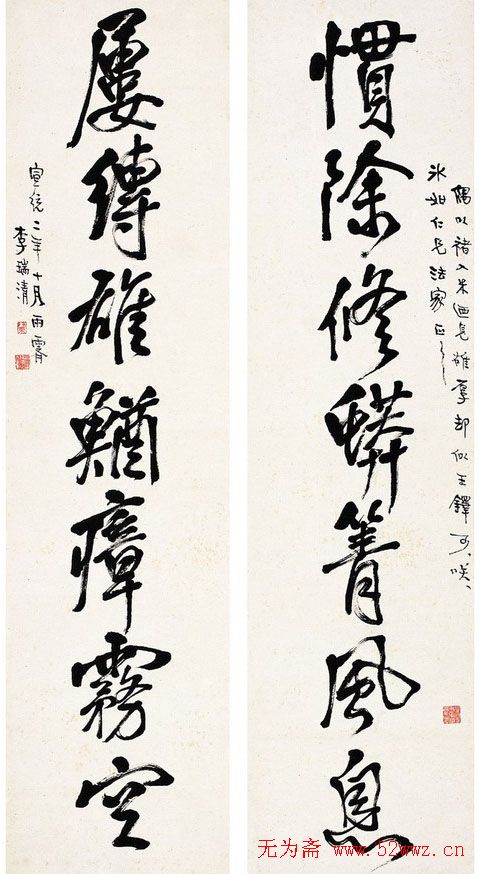 偶以褚入米迺見雄厚却似王鐸可、咲、
冰如仁兄法家正之
慣除修蟒箐風息
屢縛雄鰌瘴霧空
宣統二年十月雨霽
李瑞清
无为斋 www.52wwz.cn